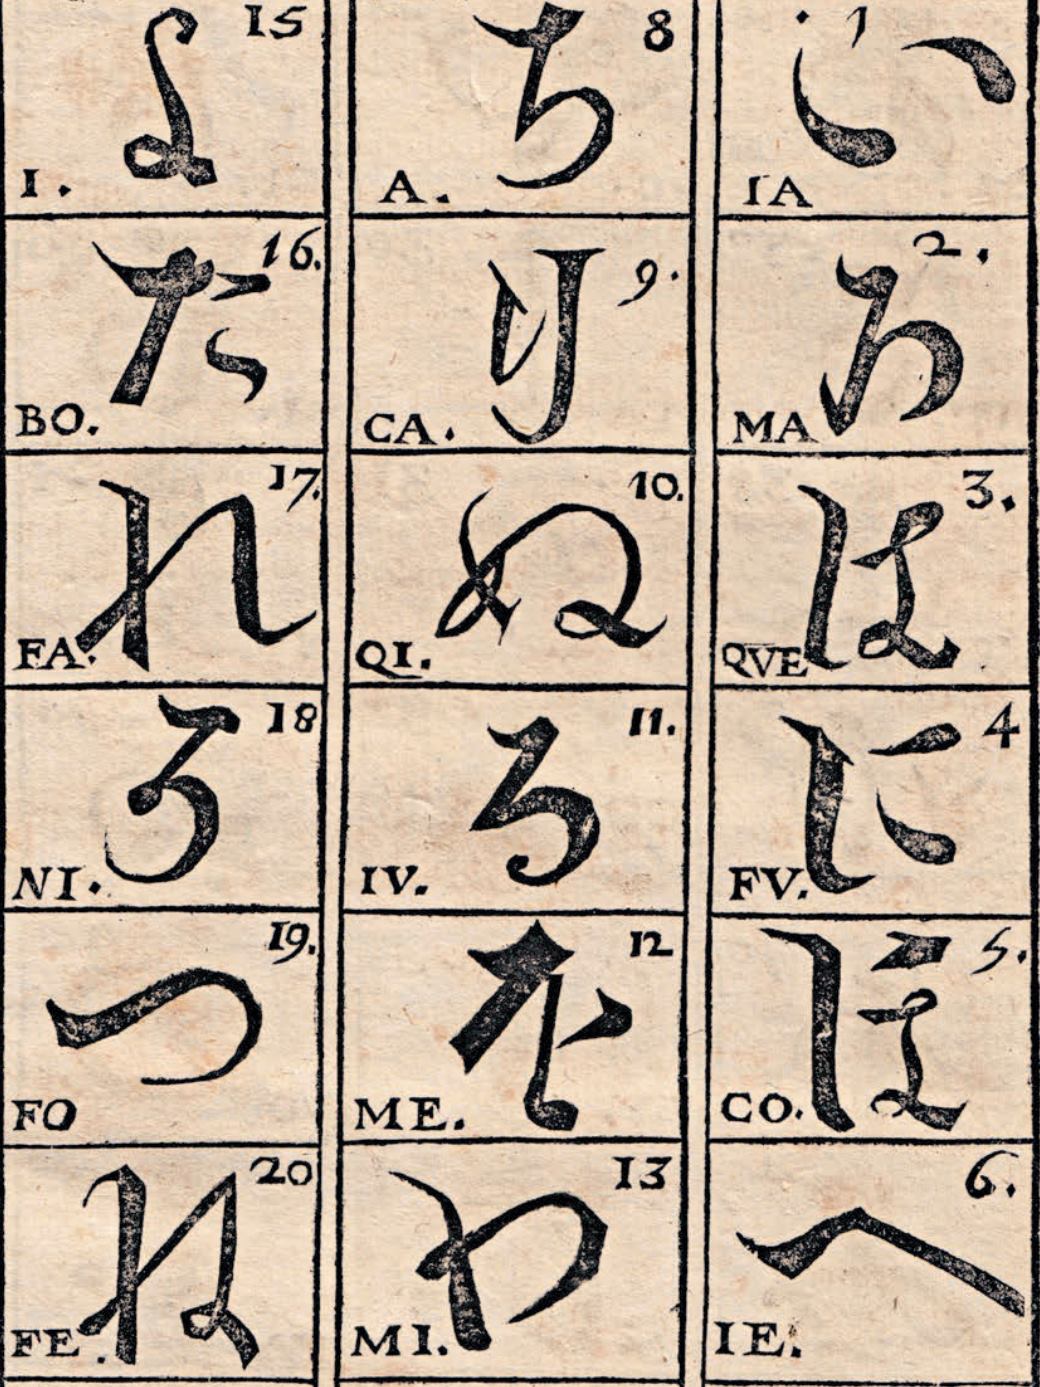 1 い IA
2. ろ MA
3. は QVE
4 に FV.
5. ほ CO.
6. へ IE.
8 ち A.
9. り CA.
10. ぬ QI.
11. る IV.
12 を ME.
13 わ MI.
15 よ I.
16. た BO.
17. れ FA.
18 そ NI.
19. つ FO
20 ね FE.